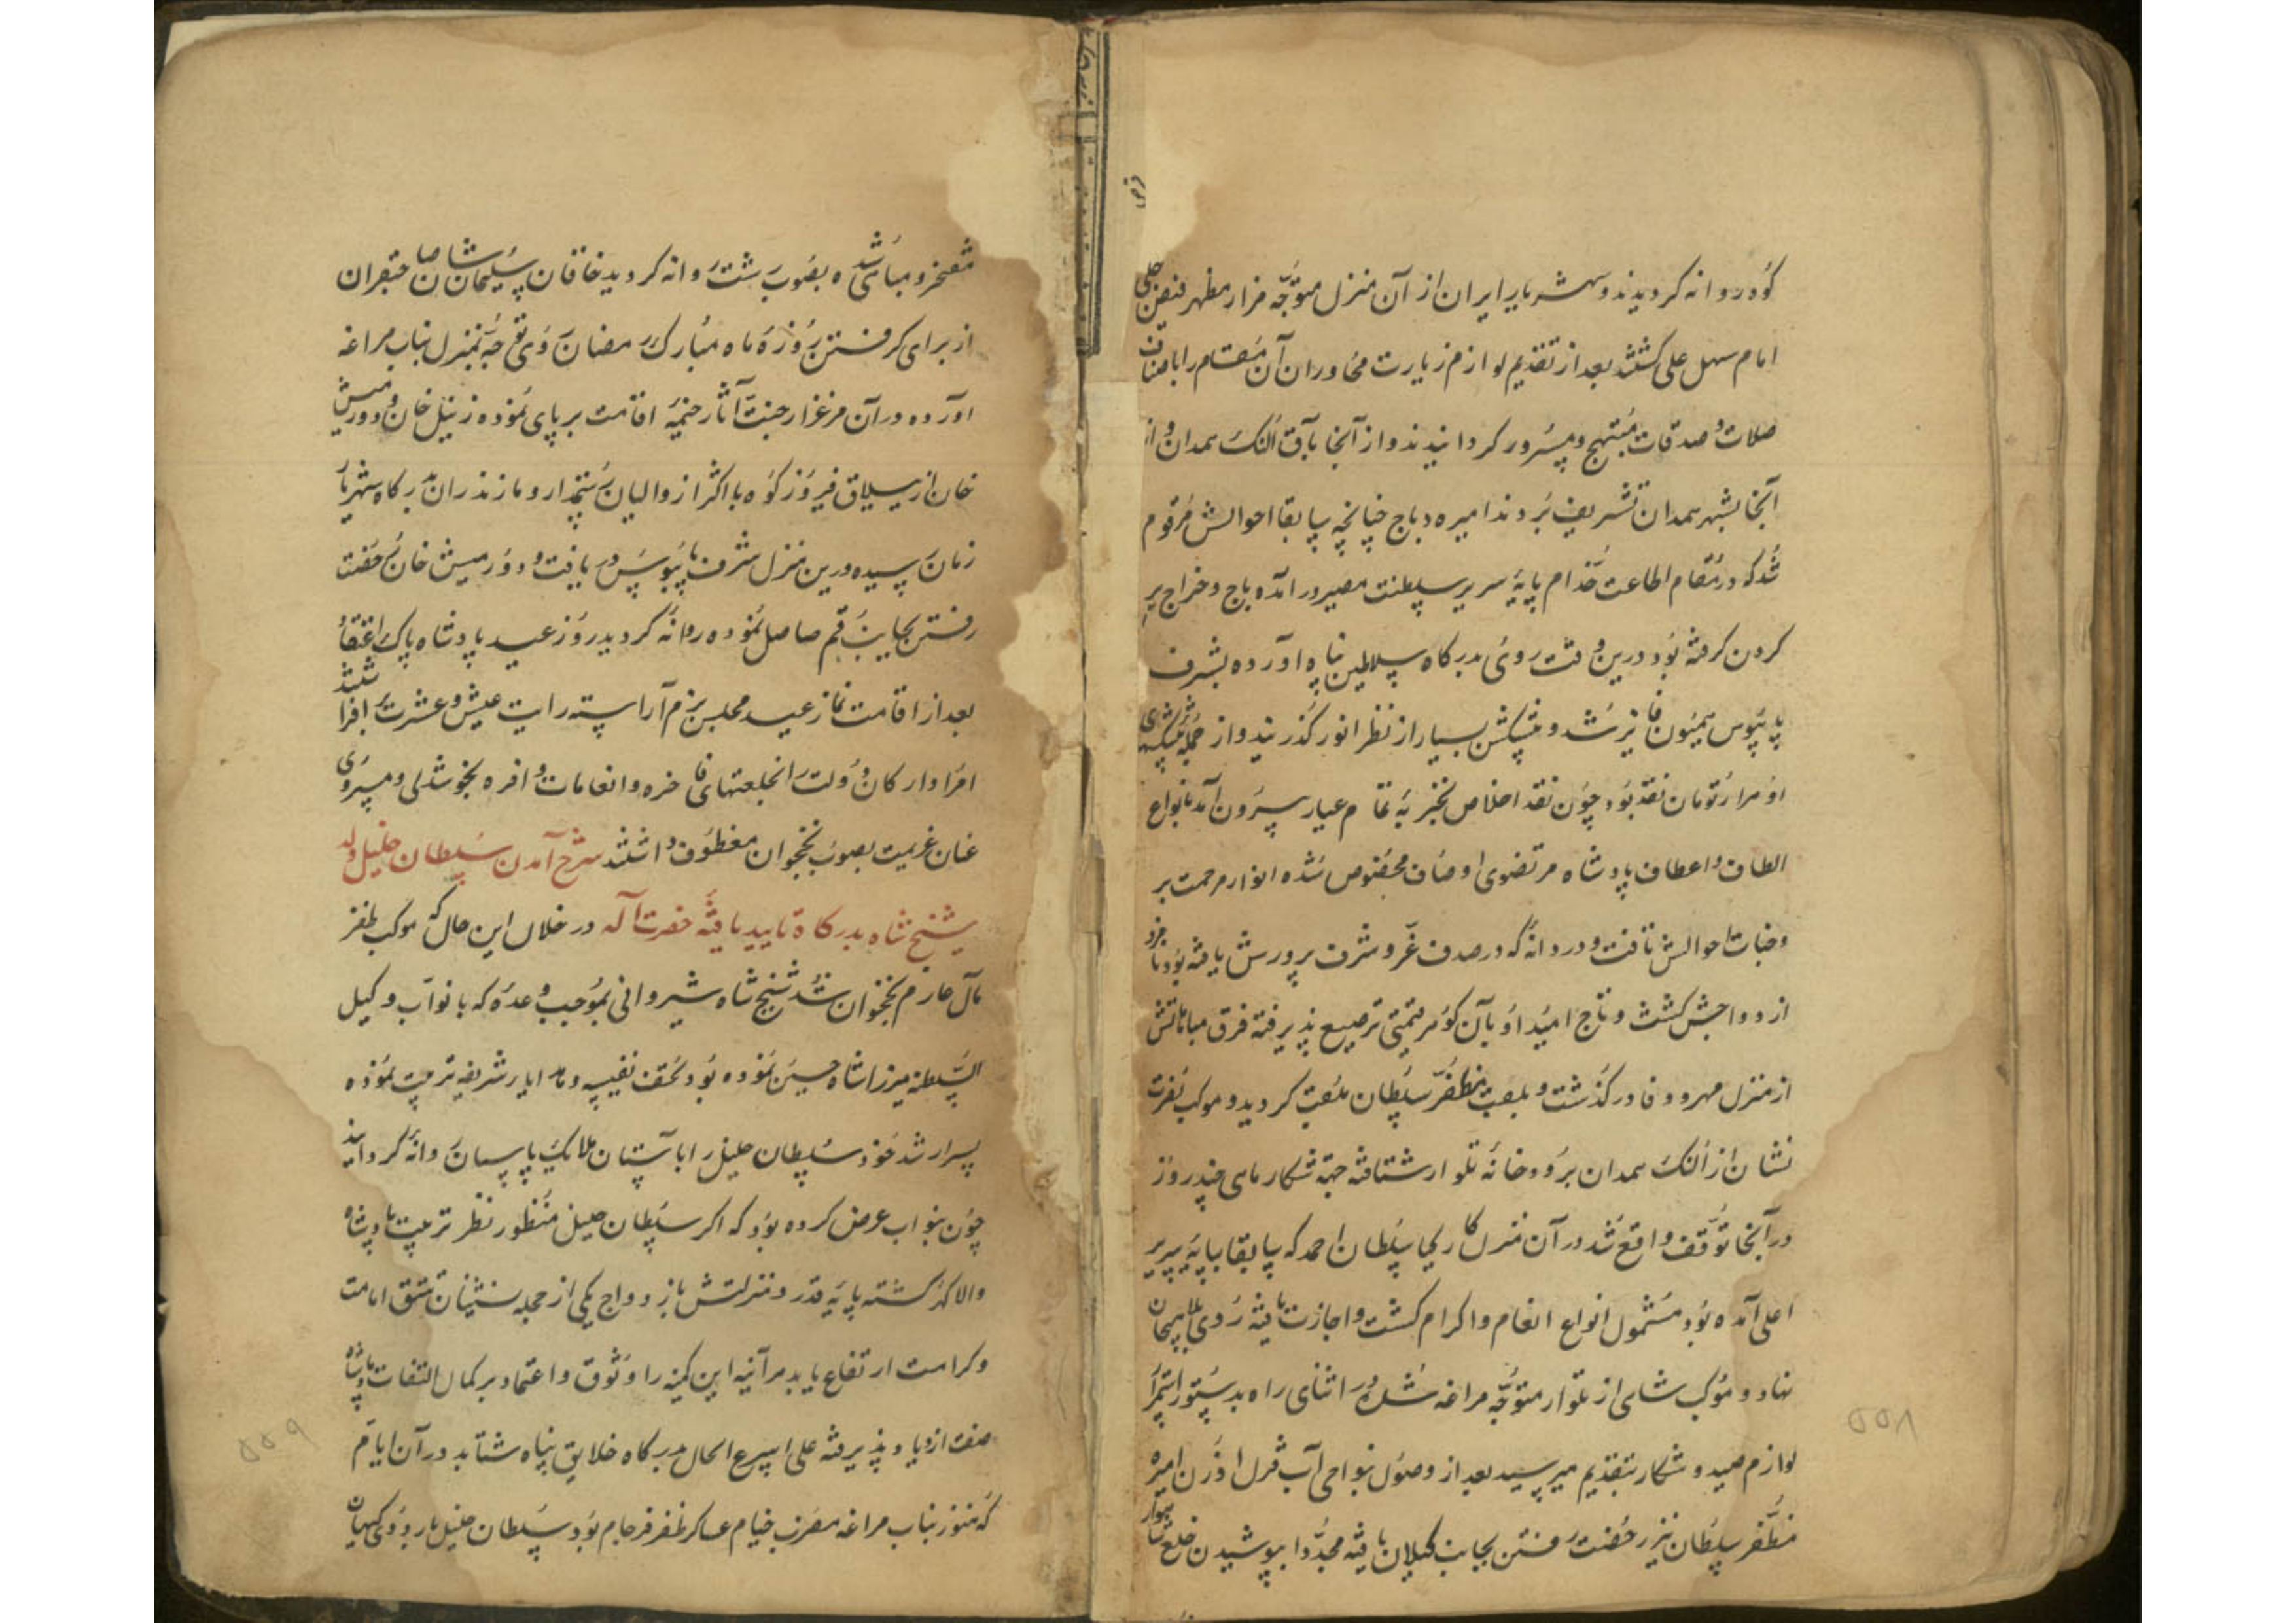 کوه روانه کردیدند و شهریار ایران از آن منزل متوجه مزار مظهر فیض جلی
امام سهل علی کشتند بعد از تقدیم لوازم زیارت مجاوران آن مقام را باصناف
صلات و صدقات مبتهج و مسرور کردانیدند و از آنجا بآق النک همدان و از
آنجا بشهر همدان تشریف بردند امیره دباج چنانچه سابقا احوالش مرقوم
شد که در مقام اطاعت خدام پایه سریر سلطنت مصیر در آمده باج و خراج بر
کردن کرفته بود درین وقت روی بدرکاه سلاطین پناه آورده بشرف
پایبوس همیون فایز شد و پیشکش بسیار از نظر انور کذرانید و از جمله پیشکشهای
او هزار تومان نقد بود چون نقد اخلاص بتجربه تمام عیار بیرون آمد بانواع
الطاف و اعطاف پادشاه مرتضوی اوصاف مخصوص شده انوار مرحمت بر
وجنات احوالش تافت و دردانه که در صدف عز و شرف پرورش یافته بود نامزد
ازدواجش کشت و تاج امید او بآن کوهر قیمتی ترصیع پذیرفته فرق مباهاتش
از منزل مهر و وفا درکذشت و بلقب مظفر سلطان ملقب کردید و موکب نصرت
نشان از النک همدان برودخانه تلوار شتافته جهة شکار ماهی چند روز
در آنجا توقف واقع شد در آن منزل کارکیا سلطان احمد که سابقا بپایه سریر
اعلی آمده بود مشمول انواع انعام و اکرام کشت و اجازت یافته روی بلاهیجان
نهاد و موکب شاهی از تلوار متوجه مراغه شد و در اثنای راه بدستور استمرار
لوازم صید و شکار بتقدیم میرسید بعد از وصول بنواحی آب قزل اوزن امیره
مظفر سلطان نیز رخصت رفتن بجانب کیلان یافته مجددا بپوشیدن خلع شاهوار
مفتخر و مباهی شده بصوب رشت روانه کردید خاقان سلیمان شان صاحبقران
از برای کرفتن روزه ماه مبارک رمضان روی توجه بمنزل بناب مراغه
آورده در آن مرغزار جنت آثار خیمه اقامت بر پای نموده زینل خان و دورمیش
خان از ییلاق فیروزکوه با اکثر از والیان رستمدار و مازندران بدرکاه شهریار
زمان رسیده درین منزل شرف پایبوس دریافت و دورمیش خان رخصت
رفتن بجانب قم حاصل نموده روانه کردید روز عید پادشاه پاک اعتقاد
بعد از اقامت نماز عید مجلس بزم آراسته رایت عیش و عشرت افراشتند
امرا و ارکان دولت را بخلعتهای فاخره و انعامات وافره بخوشدلی و مسروری
عنان عزیمت بصوب نخجوان معطوف داشتند شرح آمدن سلطان خلیل ولد
شیخ شاه بدرکاه تایید یافته حضرت آله در خلال این حال که موکب ظفر
مآل عازم نخجوان شد شیخ شاه شیروانی بموجب وعده که با نواب وکیل
السلطنه میرزا شاه حسین نموده بود تحف نفیسه و هدایاء شریفه ترتیب نموده
پسر ارشد خود سلطان خلیل را بآستان ملایک پاسبان روانه کردانید
چون بنواب عرض کرده بود که اکر سلطان خلیل منظور نظر تربیت پادشاه
والا کهر کشته پایه قدر و منزلتش بازدواج یکی از حجله نشینان تتق امامت
و کرامت ارتفاع یابد هر آینه این کمینه را وثوق و اعتماد بر کمال التفات پادشاه
صفت ازدیاد پذیرفته علی اسرع الحال بدرکاه خلایق پناه شتابد در آن ایام
که هنوز بناب مراغه مضرب خیام عساکر ظفر فرجام بود سلطان خلیل باردوی کیهان
۵۵۸
۵۵۹